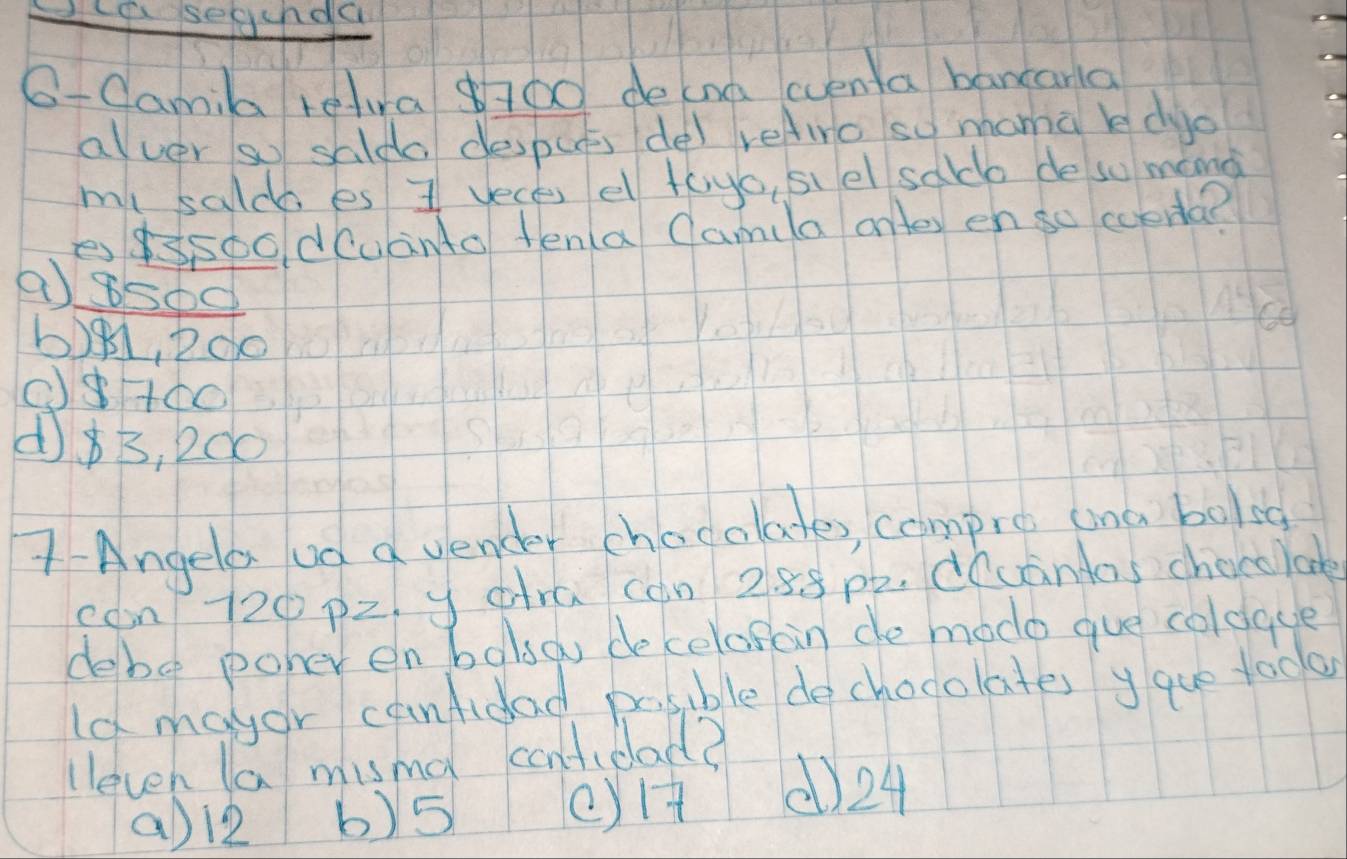 la segunda
6-Camila retira $700 de una cuenta bancaria
al ver su saldo después del retiro su mamá le dijo
mi saldo es 7 veces el tuyo, si el saldo de su mamá
es $3,500, ¿Cuánto tenía Camila antes en su cuenta?
a) $500
b) $1,200
c) $700
d) $3,200
7-Angela va a vender chocolates, compro una bolsa
con 120 pz. y otra con 288 pz. ¿Cuántos chocolates
debe poner en bolsas de celofain de modo que coloque
la mayor cantidad posible de chocolates y que todas
lleven la misma cantidad?
a) 12 b) 5 c) 17 d) 24